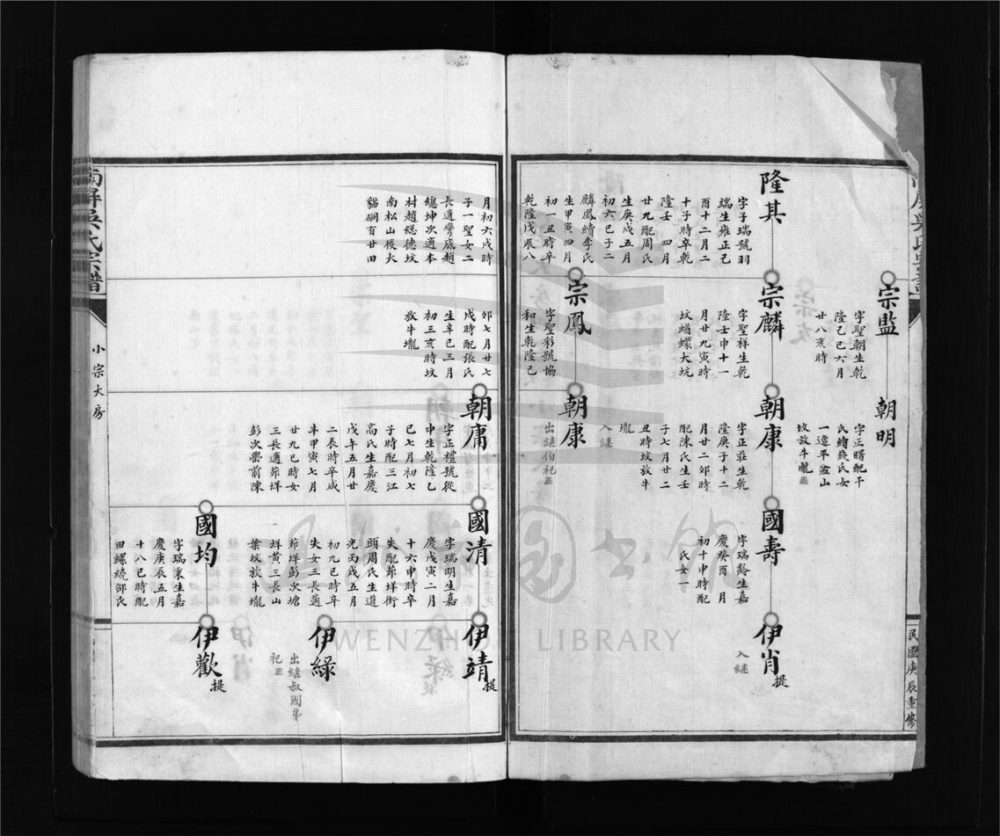 宗監
字聖朝生乾
隆己巳六月
廿八亥時
朝明
字正曙配干
氏繪錢氏女
一適平盈山
坟放牛壠
隆其
字子瑞號羽
端生雍正己
酉十二月二
十子時卒乾
隆壬 四月
廿九配周氏
生庚戌五月
初六巳子二
麟鳳繪李氏
生甲寅四月
初一丑時卒
乾隆戊辰八
宗麟
字聖祥生乾
隆壬申十一
月廿九寅時
坟蛳螺大坑
朝康
字正莊生乾
隆庚子十二
月廿二卯時
配陳氏生壬
子七月廿二
丑時坟放牛
壠
入継
國壽
字瑞齡生嘉
慶癸酉 月
初十申時配
 氏女一
伊肖
入継
提
宗鳳
字聖彩號協
和生乾隆己
朝康
出継伯祀
民國庚辰重修
月初六戌時
子一聖女二
長適彎底趙
總坤次適本
村趙總德坟
南松山後大
貓硐百廿田
卯七月廿七
戌時配張氏
生辛巳三月
初三亥時坟
放牛壠
朝庸
字正禮號從
中生乾隆乙
巳七月初七
子時配三江
高氏生嘉慶
戊午五月廿
二辰時卒咸
丰甲寅七月
廿九巳時女
三長適茆垟
彭次嶴前陳
國清
字瑞明生嘉
慶戊寅二月
十六申時卒
失配茆垟街
頭周氏生道
光丙戌五月
初九巳時卒
失女三長適
茆垟彭次塘
垟黄三長山
葉坟放牛壠
伊靖
提
伊綠
出継叔國第
祀
國均
字瑞東生嘉
慶庚辰五月
十八巳時配
田螺繞邵氏
伊歡
提
南屏吳氏宗譜
小宗大房
WENZHOU LIBRARY